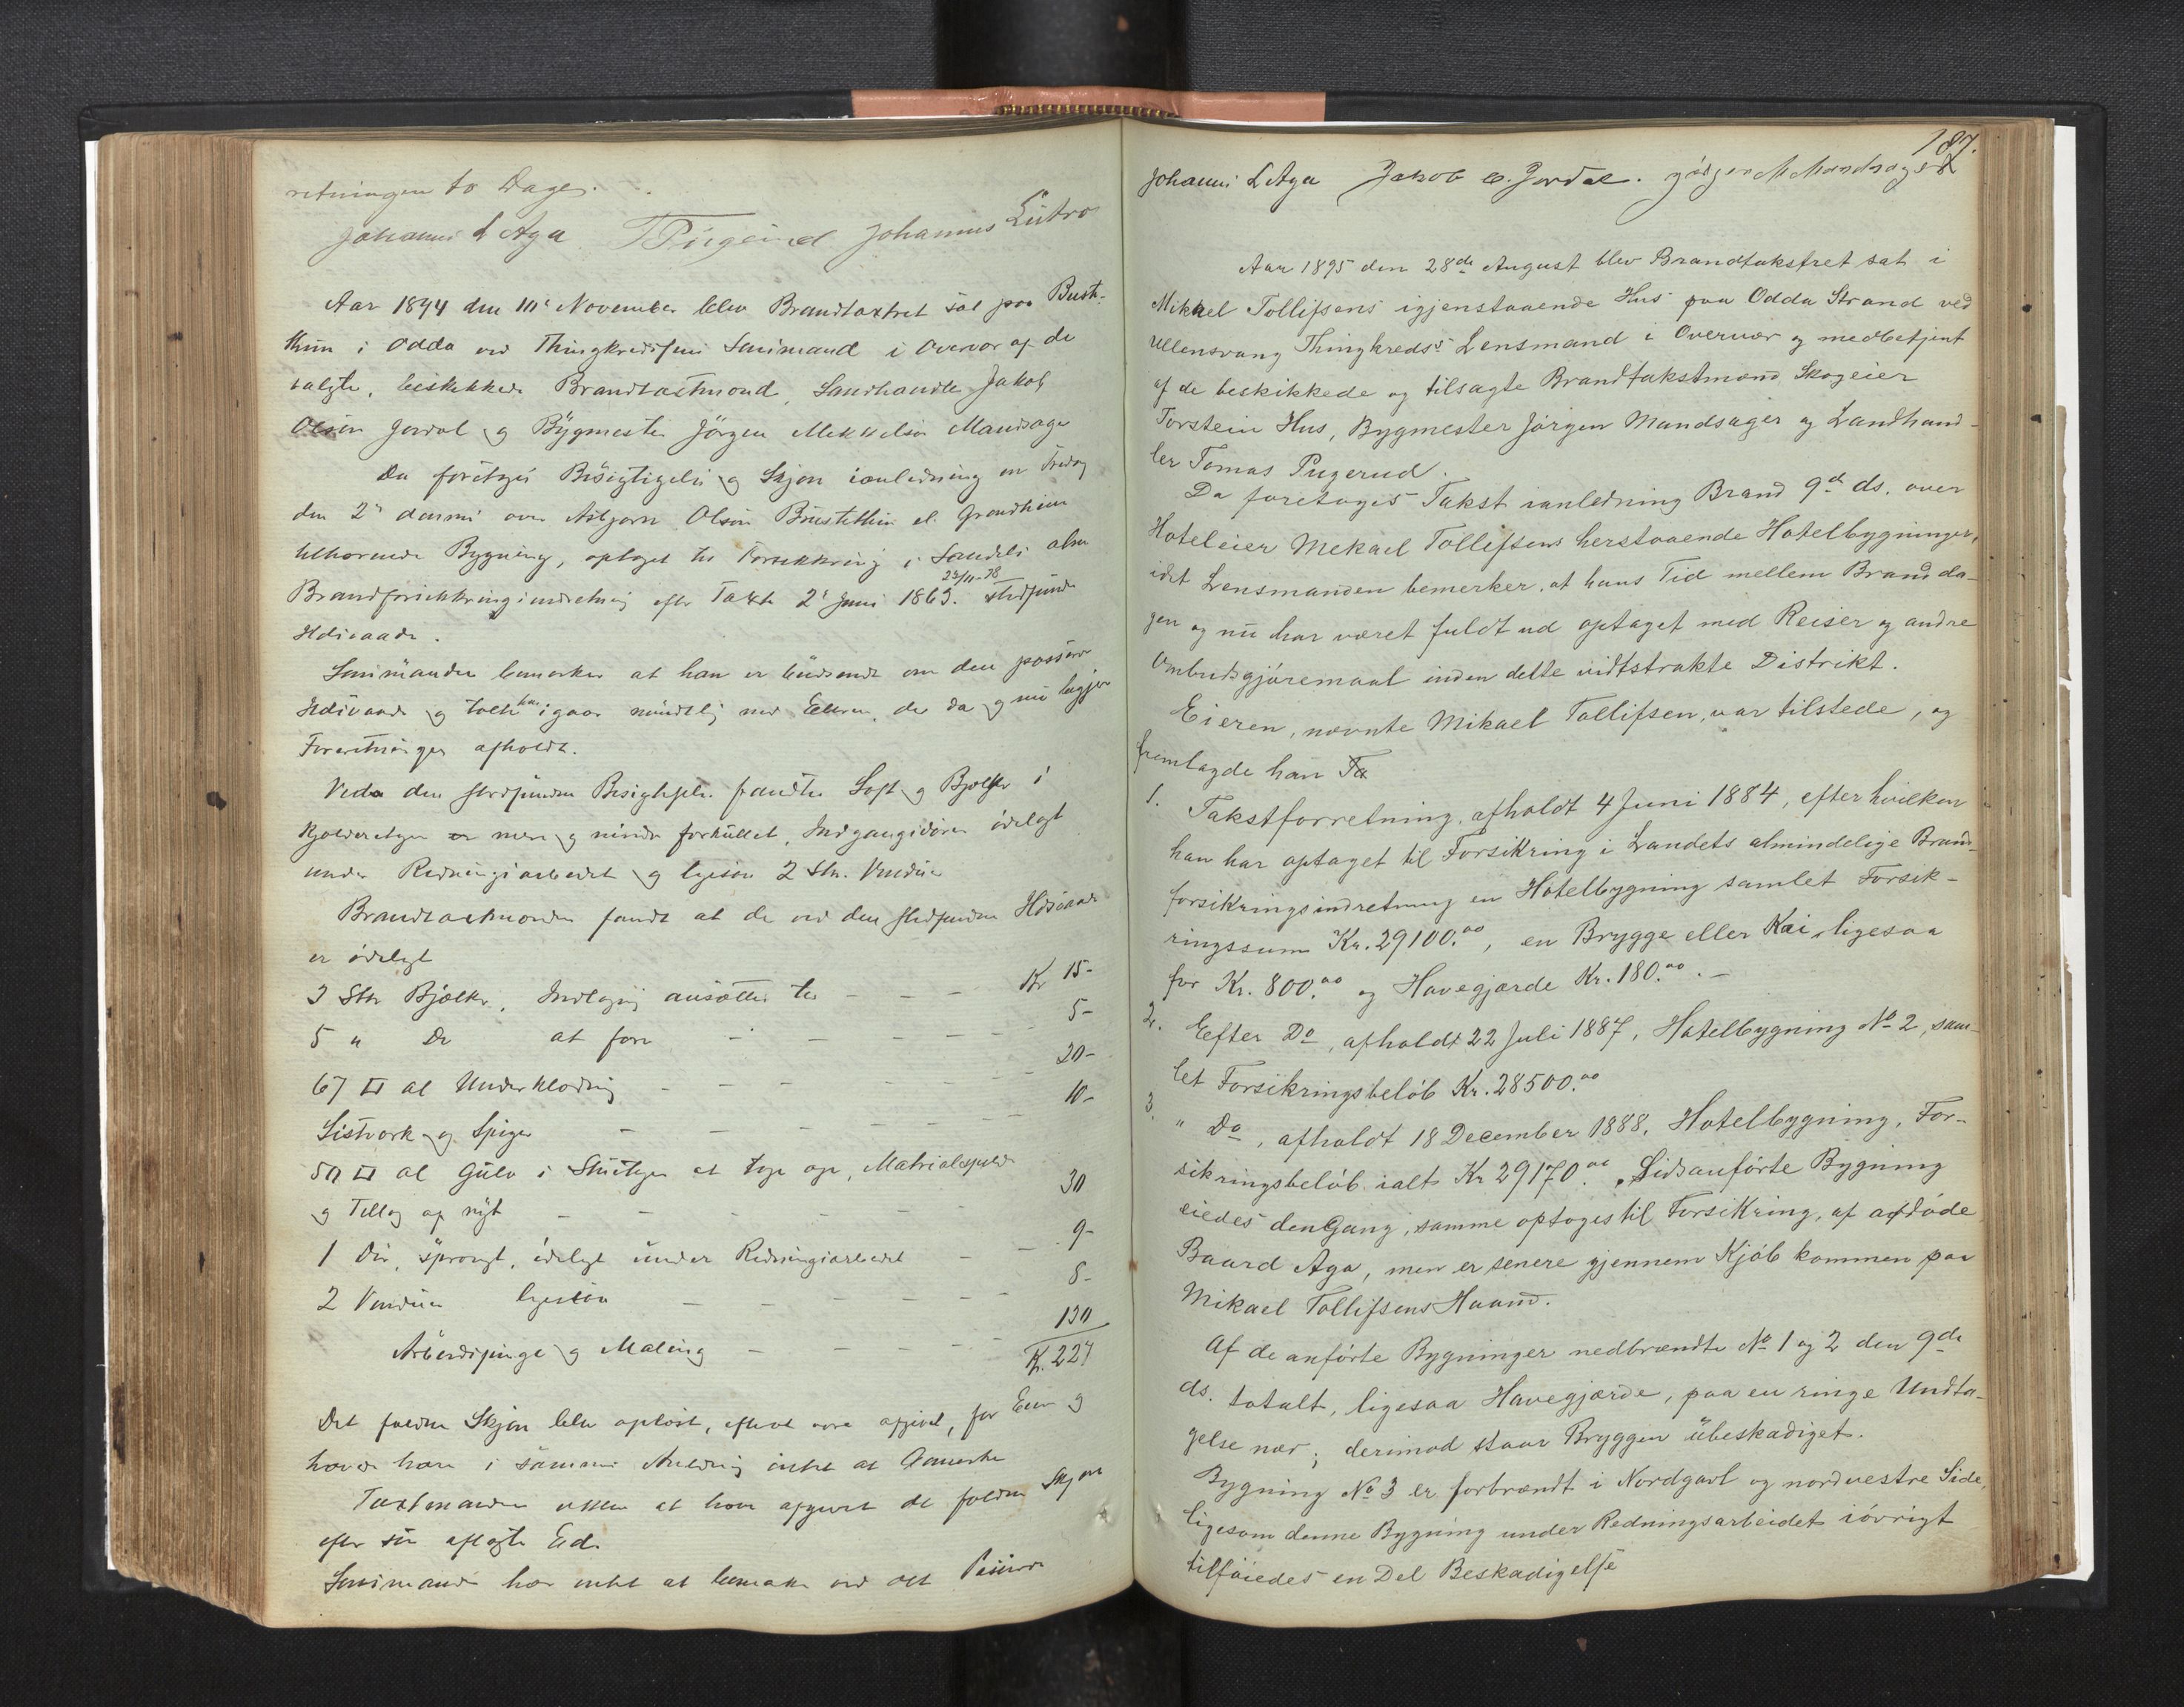 retningen to Dage.
Johannes L Aga T Pugerud Johannes Lutro
Aar 1894 den 10de November blev Brandtaxtret sat paa Bust-
thun i Odda ved Thingkredsens Lensmand i Overvær af de
valgte, beskikkede Brandtaxtmænd, Landhandler Jakob
Olsen Jordal og Bygmester Jörgen Mikkelsen Mandsager
Da foretoges Besigtigelse og Skjøn ianledning en Fredag
den 2den dennes over Asbjørn Olsen Bustethun el. Grandheim
tilhørende Bygning, optaget til Forsikkring i Landets alm
Brandforsikkringsindretning efter Taxt 2 Juni 1863. 23/11-78 stedfunden
Ildsvaade.
Lensmanden bemærker at han er vidende om den passerede
Ildsvaade og talte igaar mundtlig med Eieren, der da og nu begjær
Forretningen afholdt.
Veda den stedfundne Besigtigelse fandtes Loft og Bjælker i
Kjælderetagen er mere og mindre forkullet, Indgangsdøren ødelagt
under Redningsarbeidet og ligesaa 2 Stk. Vinduer
Brandtaxtmændene fandt at de ved den stedfundne Ildsvaade
er ødelagt
3 Stk Bjælker, Indlægning ansættes til - - - Kr 15-
5 " Do at fore - - - - 5-
67 □ al Underklædning - - - - 20-
Listverk og Spiger - - - - 10-
50 □ al Gulv i Stuetagen at tage op, Materialspilde
og Tillæg af nyt - - - - 30
1 Dør, sprængt, ødelagt under Redningsarbeidet - - 9-
2 Vinduer ligesaa - - - - 8-
Arbeidspenge og Maling - - - - 130
Kr. 227
Det faldne Skjøn blev oplæst, efterat være afgivet, for Eier og
havde han i samme Anledning intet at bemærke
Taxtmændene at have afgivet det faldne Skjøn
efter sin aflagte Ed.
Lensmanden har intet at bemærke ved det Passerede
187.
Johannes L Aga Jakob O. Jordal. Jörgen M Mandsager
Aar 1895 den 28de August blev Brandtakstret sat i
Mikael Tollifsens igjenstaaende Hus paa Odda Strand ved
Ullensvang Thingkreds's Lensmand i Overvær og medbetjent
af de beskikkede og tilsagte Brandtakstmænd Skogeier
Torstein Hus, Bygmester Jörgen Mandsager og Landhand-
ler Tomas Pugerud.
Da foretoges Takst ianledning Brand 9de ds. over
Hoteleier Mekael Tollefsens herstaaende Hotelbygninger,
idet Lensmanden bemerker, at hans Tid mellem Brandda-
gen og nu har været fuldt ud optaget med Reiser og andre
Ombudsgjöremaal inden dette vidtstrakte Distrikt.
Eieren, nævnte Mikael Tollifsen, var tilstede, og
fremlagde han Ta
1. Takstforretning, afholdt 4 Juni 1884, efter hvilken
han har optaget til Forsikring i Landets almindelige Brand-
forsikringsindretning en Hotelbygning samlet Forsik-
ringssum Kr. 29100.00, en Brygge eller Kai, ligesaa
for Kr. 800.00 og Havegjærde Kr. 180.00. -
2. Eefter Do, afholdt 22 Juli 1887, Hotelbygning No 2, sam-
let Forsikringsbelöb Kr. 28500.00
3. " Do, afholdt 18 December 1888, Hotelbygning, For-
sikringsbelöb ialt Kr 29170.00. Sidsanförte Bygning
eiedes denGang, samme optoges til Forsikring, af afdöde
Baard Aga, men er senere gjennem Kjöb kommen paa
Mikael Tollifsens Haand.
Af de anförte Bygninger nedbrændte No 1 og 2 den 9de
ds. totalt, ligesaa Havegjærde, paa en ringe Undta-
gelse nær; derimod staar Bryggen ubeskadiget.
Bygning No 3 er forbrændt i Nordgavl og nordvestre Side,
ligesom denne Bygning under Redningsarbeidet iövrigt
tilföiedes en Del Beskadigelse